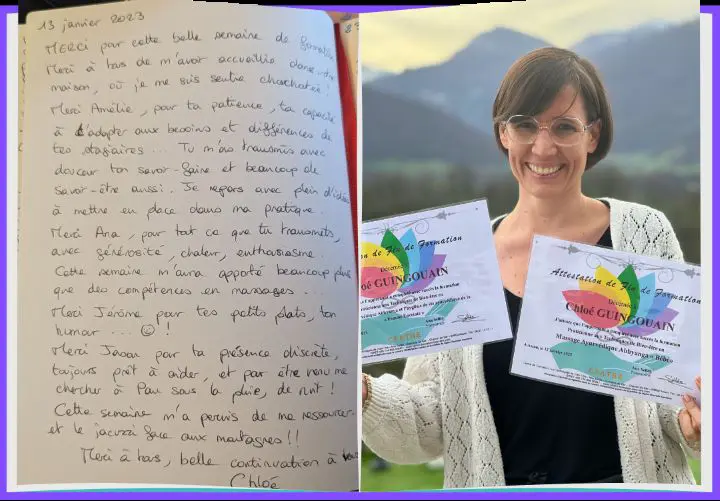 13 janvier 2023
MERCI par cette belle semaine de formation
Merci à tous de m'avoir accueillie dans
maison, où je me suis sentie chouchoutée !
Merci Amélie, pour ta patience, ta capacité
à t'adapter aux besoins et différences de
tes stagiaires ... Tu m'as transmis avec
douceur ton savoir-faire et beaucoup de
savoir-être aussi. Je repars avec plein d'idées
à mettre en place dans ma pratique.
Merci Ana, pour tout ce que tu transmets,
avec générosité, chaleur, enthousiasme.
Cette semaine m'aura apporté beaucoup plus
que des compétences en massages ...
Merci Jérôme pour tes petits plats, ton
humour ... ☺ !
Merci Jason pour ta présence discrète,
toujours prêt à aider, et par être venu me
chercher à Pau sous la pluie, de nuit !
Cette semaine m'a permis de me ressourcer
et le jacuzzi face aux montagnes !!
Merci à tous, belle continuation à vous
Chloé
on de Fin de Formation
Décernée
oé GUINGOUAIN
CENTRE
Attestation de Fin de Formation
Décernée
Chloé GUINGOUAIN
Praticienne des Techniques de Bien-être en
Massage Ayurvédique Abhyanga « Bébé »
CENTRE